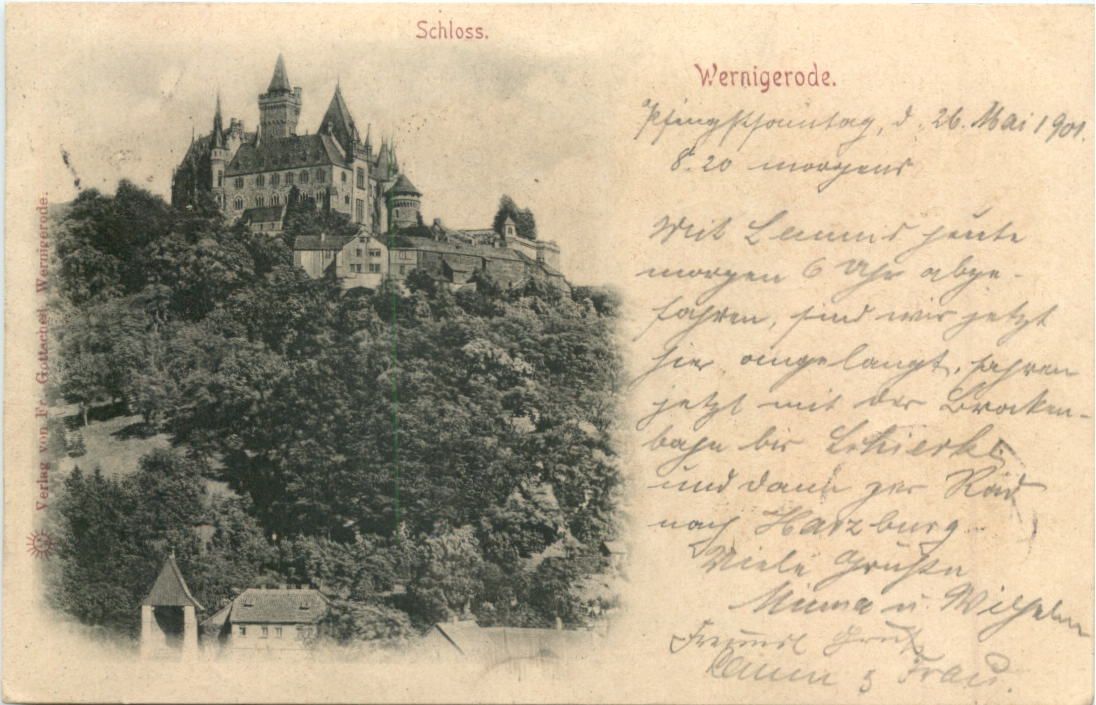 Schloss.
Wernigerode.
Verlag von F. Gottschet, Wernigerode.
Pfingstsonntag, d. 26. Mai 1901.
8.20 morgens
Mit heute
morgen 6 Uhr abge-
fahren, sind wir jetzt
hier angelangt, fahren
jetzt mit der Brocken-
bahn bis Schierke
und dann per Rad
nach Harzburg.
Viele Grüße
Minna u. Wilhelm
Freundl. Gruß
Frau.